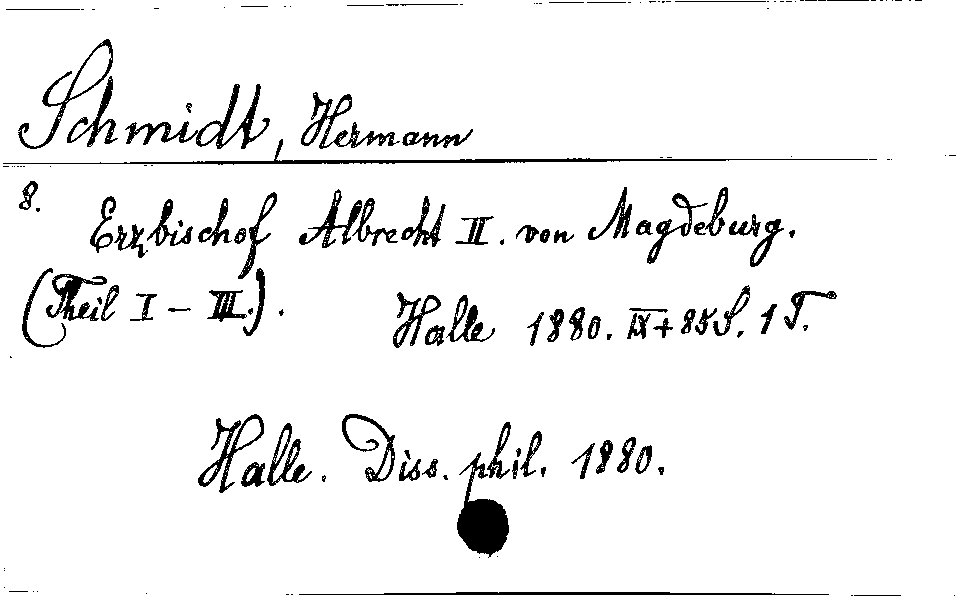 Schmidt, Hermann
8.
Erzbischof Albrecht II. von Magdeburg.
(Theil I – III.).
Halle 1880. IX + 85 S. 1 T.
Halle. Diss. phil. 1880.